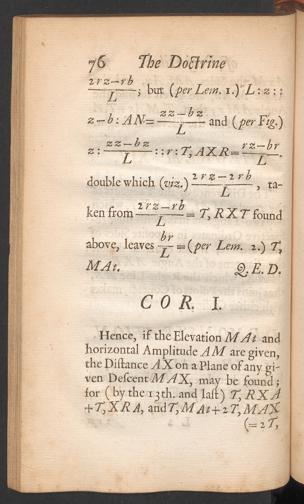 76 The Doctrine
2rz−rb/L; but (per Lem. 1.) L:z::
z−b: AN= zz−bz/L and (per Fig.)
z: zz−bz/L ::r:T, AXR= rz−br/L.
double which (viz.) 2rz−2rb/L, ta-
ken from 2rz−rb/L = T, RXT found
above, leaves br/L =(per Lem. 2.) T,
MAt. Q. E. D.
COR. I.
Hence, if the Elevation MAt and
horizontal Amplitude AM are given,
the Distance AX on a Plane of any gi-
ven Descent MAX, may be found;
for (by the 13th. and last) T, RXA
+T, XRA, and T, MAt+2T, MAX
(=2T,